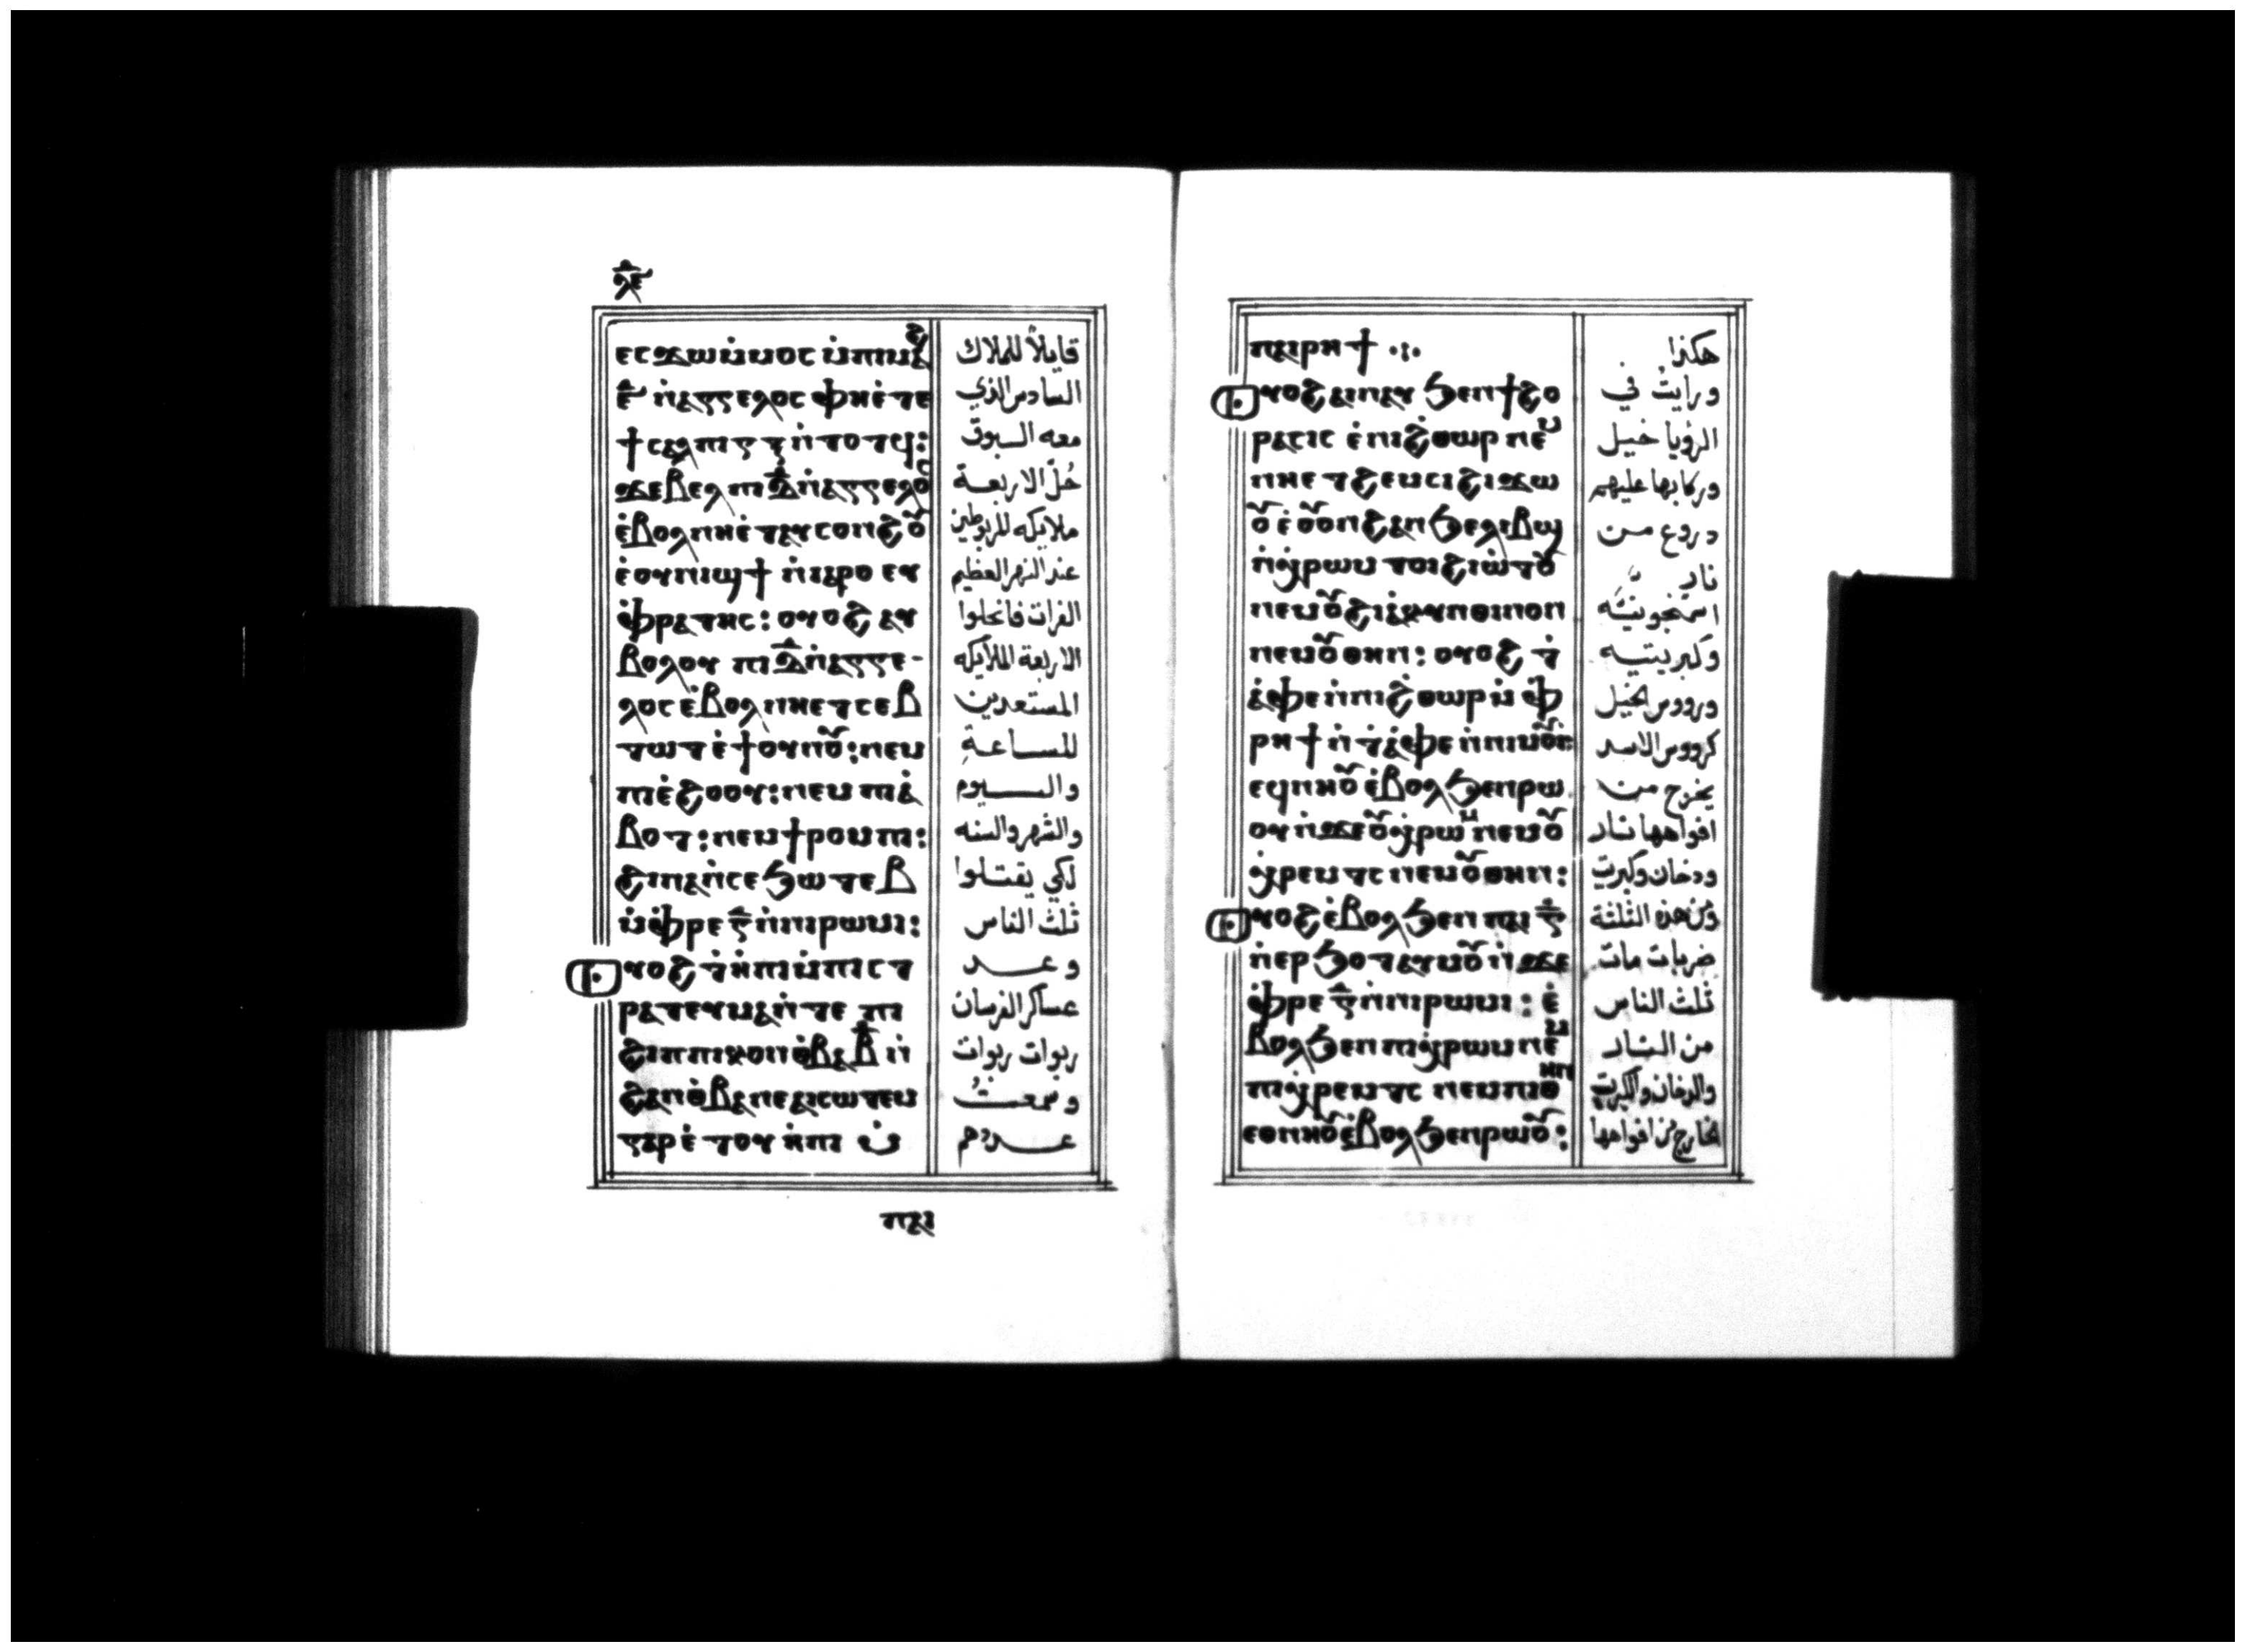 ⲉⲥϫⲱⲙ̇ⲙⲟⲥ ⲙ̇ⲡⲓⲙⲁϩ
ⲋ̅ ⲛ̇ⲁⲅⲅⲉⲗⲟⲥ ⲫⲏⲉ̇ⲧⲉ
ϯⲥⲁⲗⲡⲓⲅⲝ ⲛ̇ⲧⲟⲧϥ:
ϫⲉⲃⲉⲗ ⲡⲓⲇ̅ⲛ̇ⲁⲅⲅⲉⲗⲟⲥ
ⲉ̇ⲃⲟⲗⲛⲏⲉ̇ⲧⲁⲩⲥⲟⲛϩⲟⲩ
ⲉ̇ⲟⲩⲛⲓϣϯ ⲛ̇ⲓⲁⲣⲟ ⲉⲩ
ⲫ̇ⲣⲁⲧⲏⲥ: ⲟⲩⲟϩ ⲁⲩ
ⲃⲟⲗⲟⲩ ⲡⲓⲇ̅ⲛ̇ⲁⲅⲅⲉ-
ⲗⲟⲥ ⲉ̇ⲃⲟⲗⲛⲏⲉⲧⲥⲉⲃ
ⲧⲱⲧ ⲉ̇ϯⲟⲩⲛⲟⲩ: ⲛⲉⲙ
ⲡⲓⲉ̇ϩⲟⲟⲩ: ⲛⲉⲙ ⲡⲓⲁ̇
ⲃⲟⲧ: ⲛⲉⲙϯⲣⲟⲙⲡⲓ:
ϩⲓⲛⲁⲛ̇ⲥⲉϧⲱⲧⲉⲃ
ⲙ̇ⲫ̇ⲣⲉⲅ̅ⲛ̇ⲛⲓⲣⲱⲙⲓ:
ⲟⲩⲟϩ ⲧ̇ⲏ̇ⲡⲓⲙ̇ⲡⲓⲥⲧ
ⲣⲁⲧⲉⲩⲙⲁⲛ̇ⲧⲉ ⲡⲓ
ϩⲓⲡⲡⲓⲕⲟⲛ ⲑ̇ⲃⲁⲃ̅ ⲛ̇
ϩⲁⲛⲑ̇ⲃⲁ ⲛⲉⲁⲓⲥⲱⲧⲉⲙ
ⲅⲁⲣⲉ̇ⲧⲟⲩ ⲏ̇ⲡⲓ ⲙ̇
قايلاً للملاك
السادس الذي
معه البوق
حُلّ الاربعة
ملايكه المربوطين
عند النهر العظيم
الفرات فانحلوا
الاربعة الملايكه
المستعدين
للساعة
واليوم
والشهر والسنه
لكي يقتلوا
ثلث الناس
وعدد
عساكر الفرسان
ربوات ربوات
وسمعتُ
عددهم
ⲡⲁⲓ
ⲡⲁⲓⲣⲏϯ
ⲟⲩⲟϩ ⲁⲓⲛⲁⲩ ϧⲉⲛϯϩⲟ
ⲣⲁⲥⲓⲥ ⲉ̇ⲛⲓϩ̇ⲑⲱⲣ ⲛⲉⲙ
ⲛⲏⲉⲧϩⲉⲙⲥⲓϩⲓϫⲱ
ⲟⲩ ⲉ̇ⲟⲩⲟⲛϩⲁⲛϧⲉⲗⲓⲃϣ
ⲛ̇ⲭ̇ⲣⲱⲙ ⲧⲟⲓϩⲓⲱ̇ⲧⲟⲩ
ⲛⲉⲙⲟⲩϩⲓⲁ̇ⲕⲩⲛⲑⲓⲛⲟⲛ
ⲛⲉⲙⲟⲩⲑⲏⲛ: ⲟⲩⲟϩ ⲧ̇
ⲁ̇ⲫⲉⲛ̇ⲛⲓϩ̇ⲑⲱⲣ ⲙ̇ⲫ̇
ⲣⲏϯ ⲛ̇ⲧ̇ⲁ̇ⲫⲉⲛ̇ⲛⲓⲙⲟⲩⲓ:
ⲉϥⲛⲏⲟⲩ ⲉ̇ⲃⲟⲗϧⲉⲛⲣⲱ
ⲟⲩ ⲛ̇ϫⲉⲟⲩⲭ̇ⲣⲱⲙ ⲛⲉⲙⲟⲩ
ⲭ̇ⲣⲉⲙⲧⲥ ⲛⲉⲙⲟⲩⲑⲏⲛ:
ⲟⲩⲟϩ ⲉ̇ⲃⲟⲗϧⲉⲛ ⲡⲁⲓ ⲅ̅
ⲛ̇ⲉⲣϧⲟⲧ ⲁⲩⲙⲟⲩ ⲛ̇ϫⲉ
ⲫ̇ⲣⲉ ⲅ̅ⲛ̇ⲛⲓⲣⲱⲙⲓ: ⲉ̇
ⲃⲟⲗϧⲉⲛ ⲡⲓⲭ̇ⲣⲱⲙ ⲛⲉⲙ
ⲡⲓⲭ̇ⲣⲉⲙⲧⲥ ⲛⲉⲙⲡⲓⲑⲏⲛ
ⲉⲑⲛⲏⲟⲩ ⲉ̇ⲃⲟⲗϧⲉⲛⲣⲱⲟⲩ:
هكذا
ورايتُ في
الرؤيا خيل
وركابها عليهم
دروع من
نار
اسمنجونيّه
وكبريتيه
وروس الخيل
كرووس الاسد
يخرج من
افواهها نار
ودخان وكبريت
ومن هذه الثلثة
ضربات مات
ثلث الناس
من النار
والدخان والكبريت
الخارج من افواهها